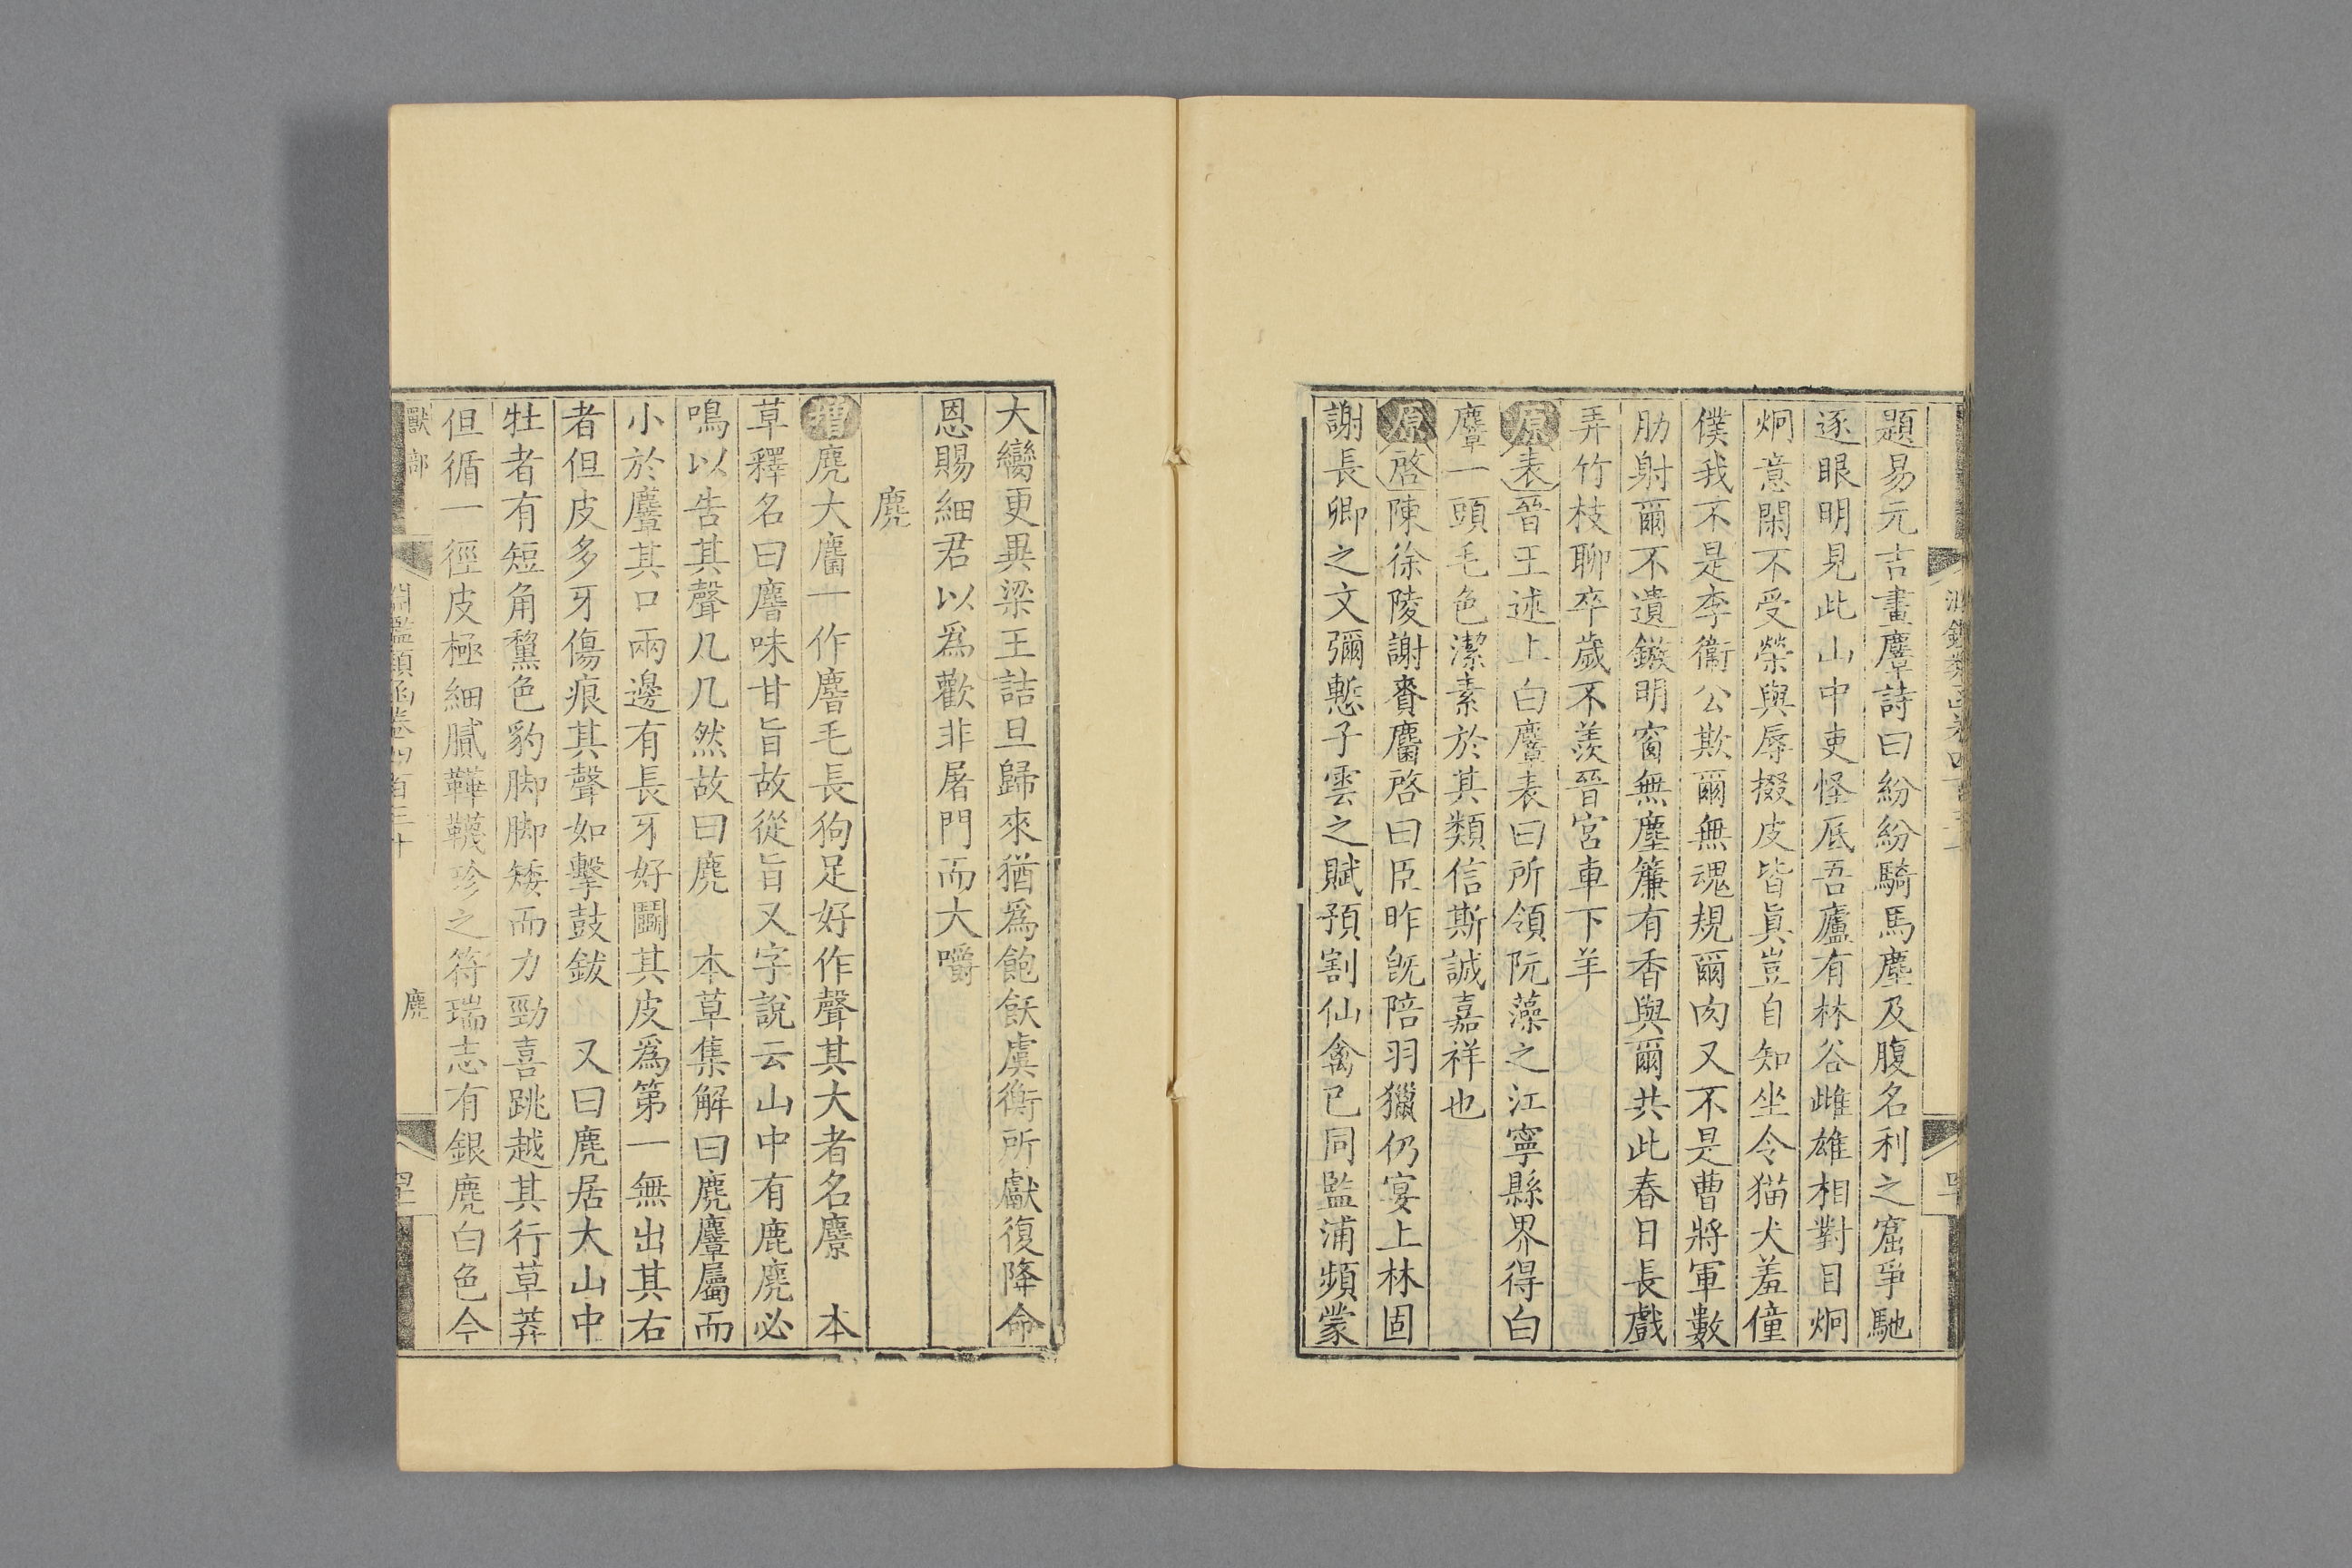 題易元吉畫麞詩曰紛紛騎馬塵及腹名利之窟爭馳
逐眼明見此山中吏怪底吾廬有林谷雌雄相對目炯
炯意閑不受榮與辱掇皮皆眞豈自知坐令猫犬羞僮
僕我不是李衞公欺爾無魂規爾肉又不是曹將軍數
肋射爾不遺鏃明窗無塵簾有香與爾共此春日長戲
弄竹枝聊卒歲不羨晉宮車下羊
原表晉王述上白麞表曰所領阮藻之江寧縣界得白
麞一頭毛色潔素於其類信斯誠嘉祥也
原啓陳徐陵謝賚麏啓曰臣昨旣陪羽獵仍宴上林固
謝長卿之文彌慙子雲之賦預割仙禽已同監浦頻蒙
大臠更異梁王詰旦歸來猶爲飽飫虞衡所獻復降命
恩賜細君以爲歡非屠門而大嚼
麂
增麂大麏一作麿毛長狗足好作聲其大者名麖 本
草釋名曰麿味甘旨故從旨又字說云山中有鹿麂必
鳴以告其聲几几然故曰麂 本草集解曰麂麞屬而
小於麞其口兩邊有長牙好鬭其皮爲第一無出其右
者但皮多牙傷痕其聲如擊鼓鈸 又曰麂居大山中
牡者有短角黧色豹脚脚矮而力勁喜跳越其行草莽
但循一徑皮極細膩鞾韈珍之符瑞志有銀麂白色今
獸部
淵鑑類函卷四百三十
麂